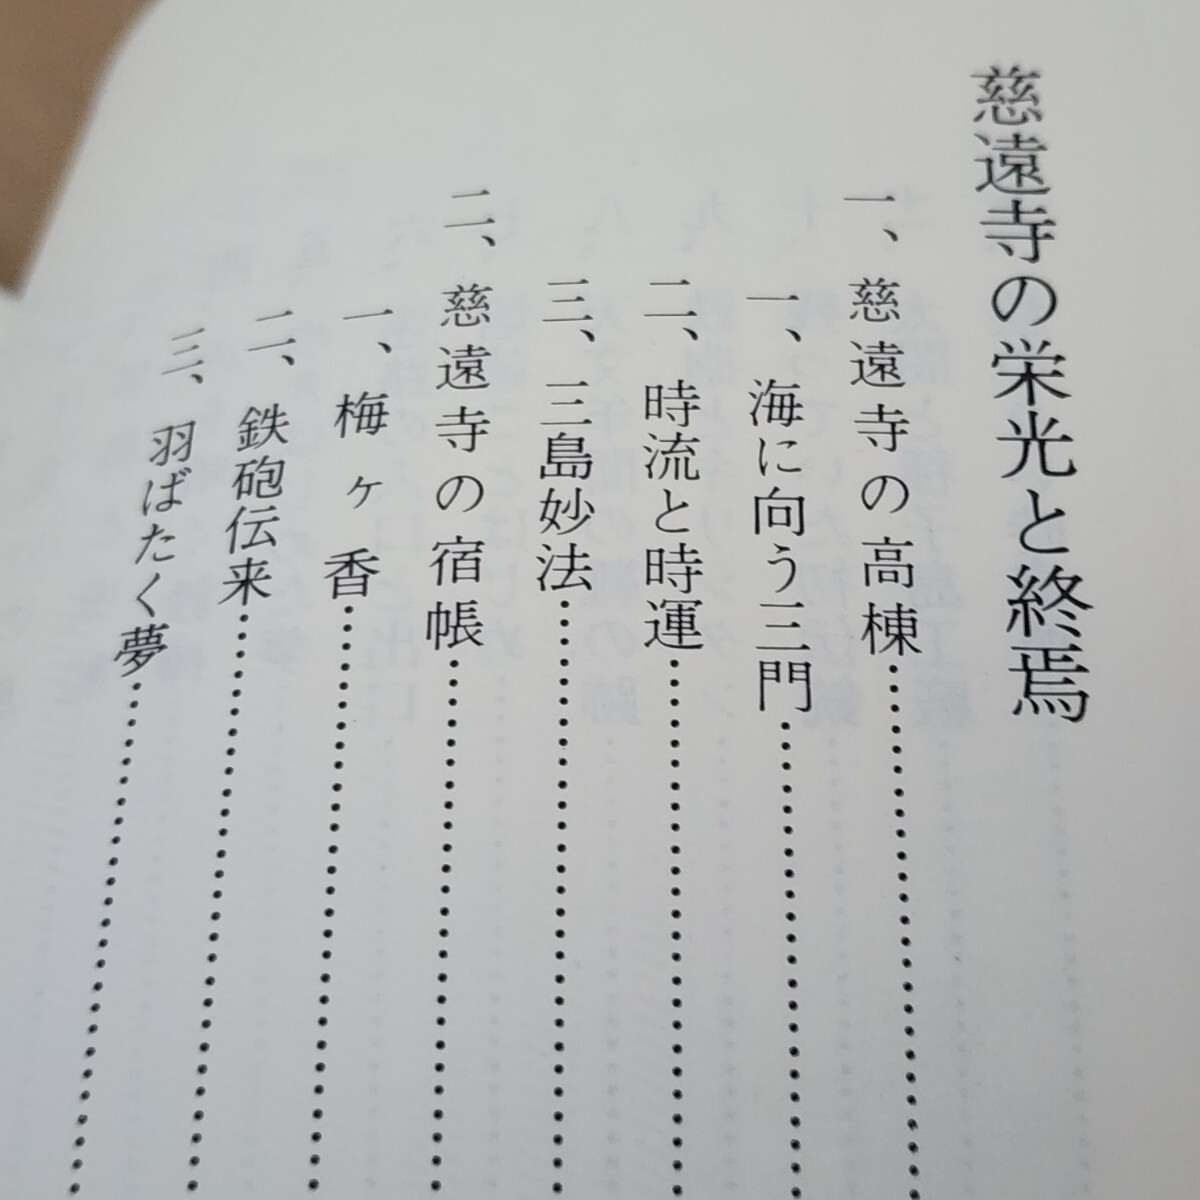 慈遠寺の栄光と終焉
一、慈遠寺の高棟
一、海に向う三門
二、時流と時運
三、三島妙法
二、慈遠寺の宿帳
一、梅ヶ香
二、鉄砲伝来
三、羽ばたく夢